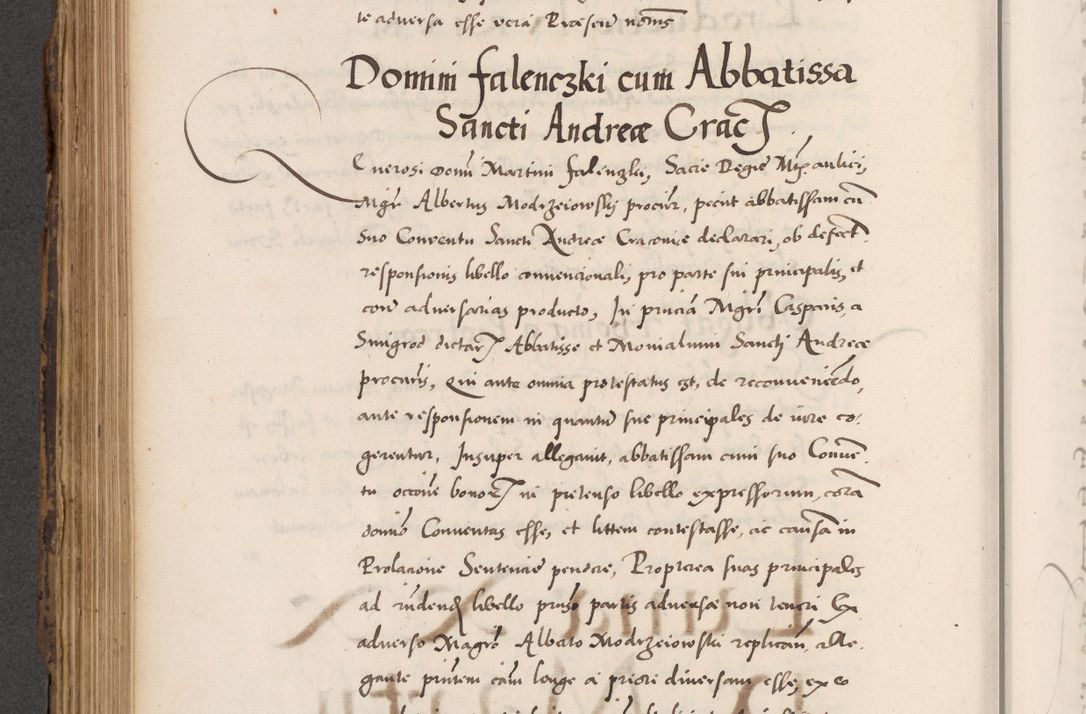 te adversa esse vera Prcesetu noms
Domini Falenczki cum Abbatissa
Sancti Andreæ Crac
Generosi Domi Martini Falenczki, Sacre Regie Mtis aulici,
Mgri Albertus Modrzeiowskj procur, petiit abbatissam cu
suo Conventu Sancti Andreæ Cracovie declarari, ob defect
responsionis libello convencionali, pro parte sui principalis, et
contra adversarias producto, In pncia Mgri Casparis, a
Smigrod dictar Abbatisse et Monialium Sanctj Andreæ
procuris, Qui ante omnia protestatus est, de reconveniedo,
ante responsionem in quantu sue principales de iure co-
gerentur, Insuper allegavit, abbatissam cum suo Conven-
tu occone bonor in pretenso libello expressorum, cora
domino Conventas esse, et littem contestasse, ac causa in
Prolacione Sentencie pendere, Propterea suas principales
ad rndend libello partis adversæ non teneri Ex
adverso Magro Albato Modrzeiowski replican, alle-
gante pntem cam longe a priore diversam esse, ex eo